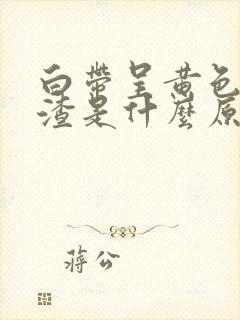 白带呈黄色
渣是什麽原
蒋公